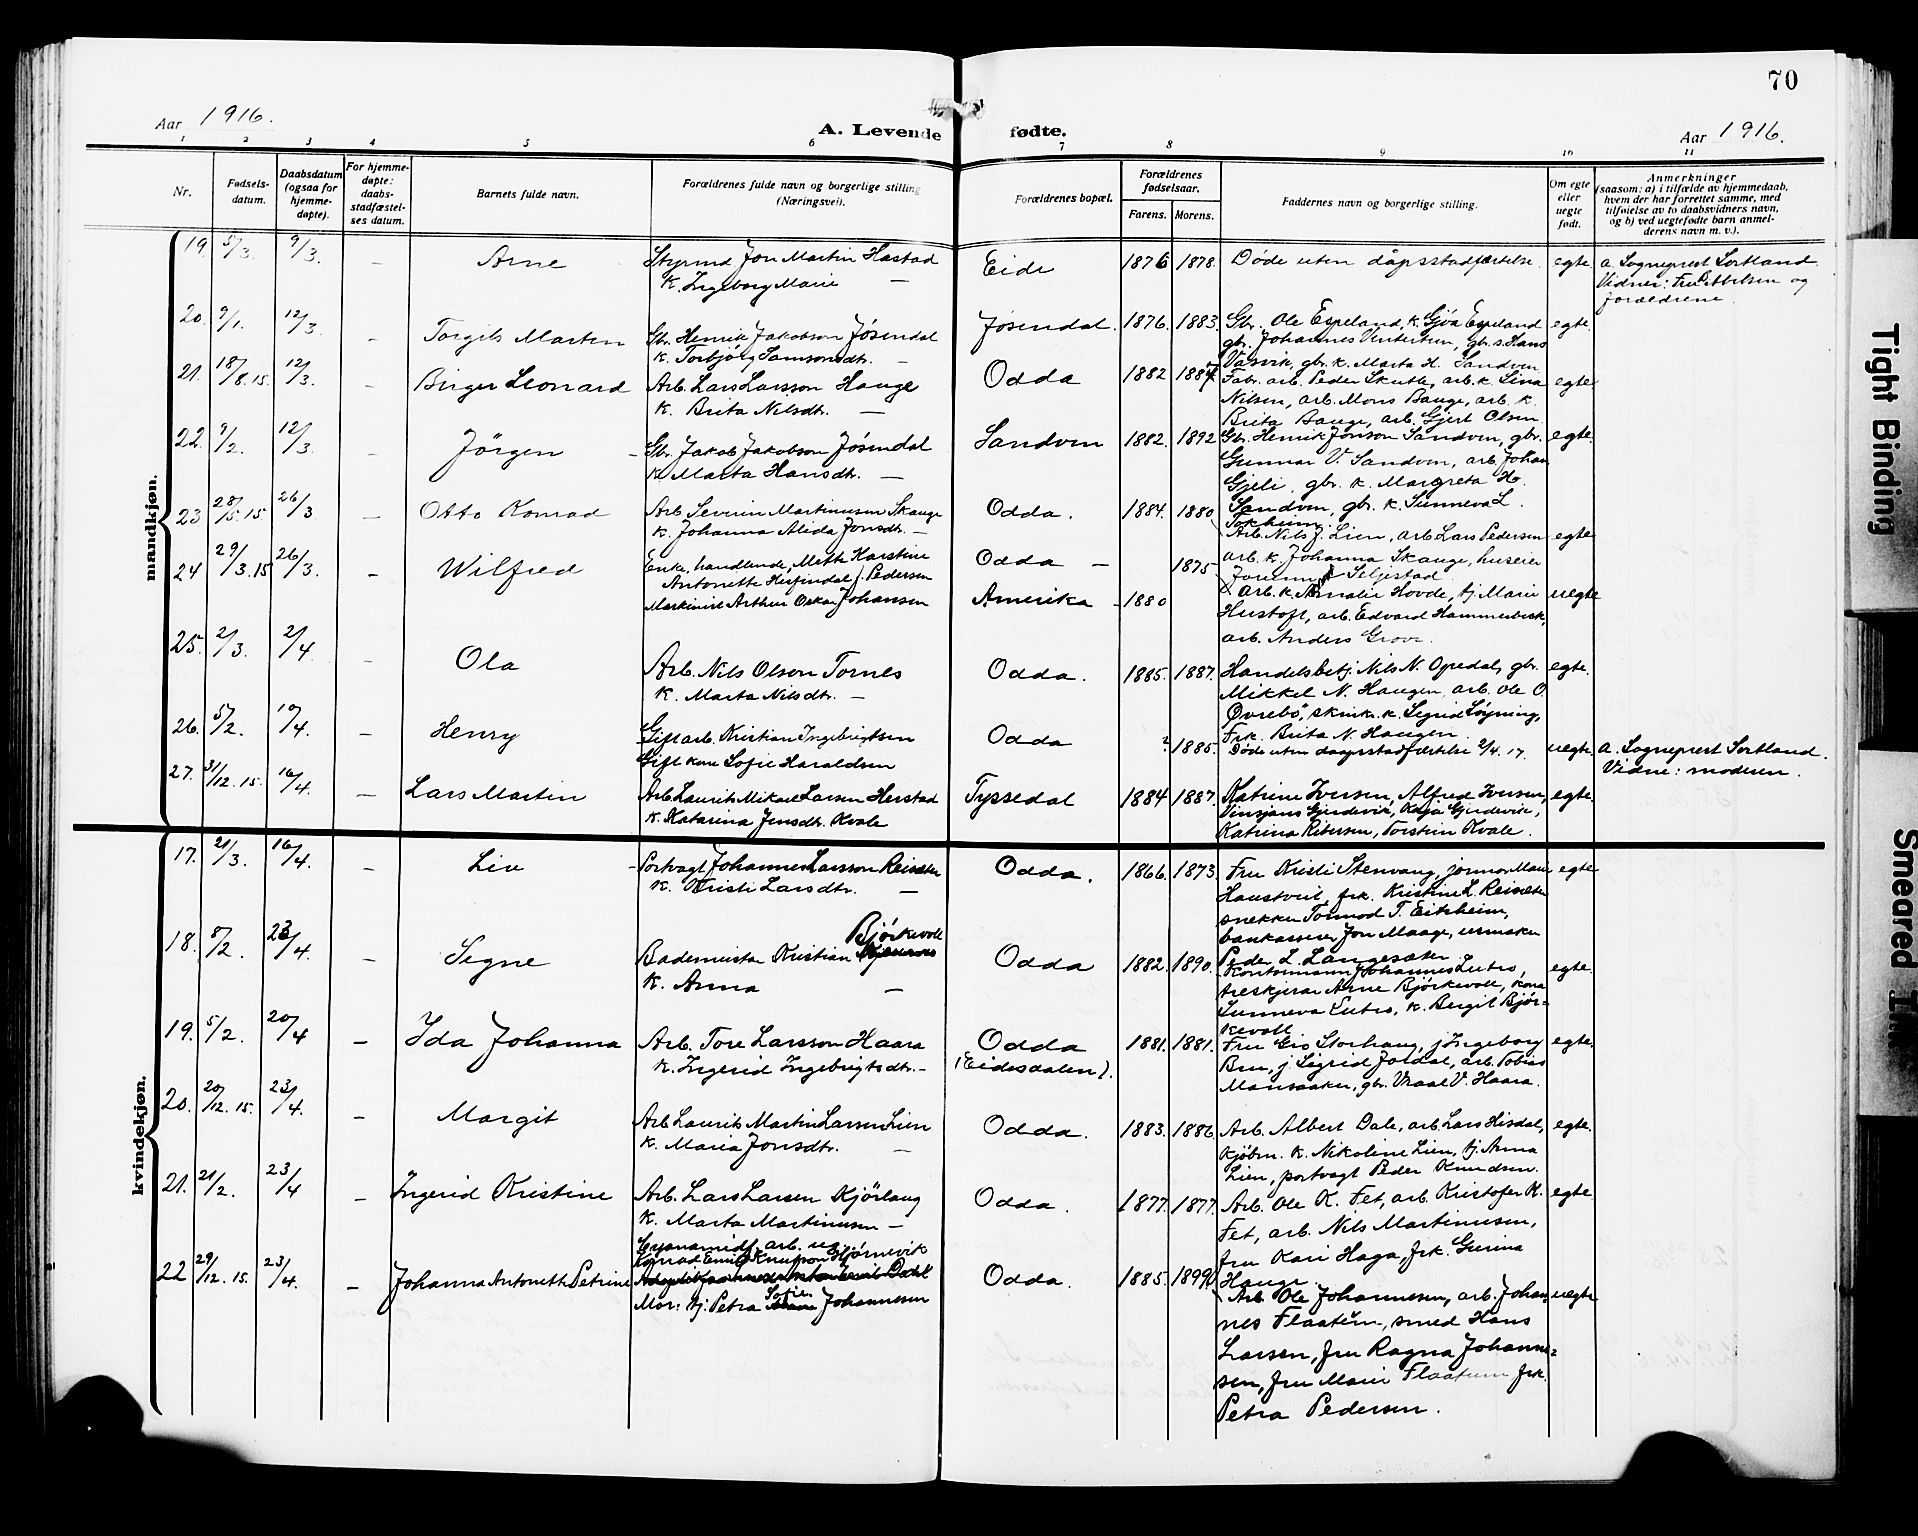 70
Aar 1916.
A. Levende fødte.
Aar 1916.
1 2 3 4 5 6 7 8 9 10 11
Nr.
Fødsels-
datum.
Daabsdatum
(ogsaa for
hjemme-
døpte).
For hjemme-
døpte:
daabs-
stadfæstel-
ses datum.
Barnets fulde navn.
Forældrenes fulde navn og borgerlige stilling.
(Næringsvei).
Forældrenes bopæl.
Forældrenes
fødselsaar.
Farens. Morens.
Faddernes navn og borgerlige stilling.
Om egte
eller
uegte
født.
Anmerkninger
(saasom: a) i tilfælde av hjemmedaab,
hvem der har forrettet samme, med
tilføielse av to daabsvidners navn,
og b) ved uegtefødte barn anmel-
derens navn m. v.).
mandkjøn.
19. 5/3. 9/3. – Arne
Styrmd Jon Martin Hastad
k. Ingeborg Marie –
Eide 1876 1878. Døde uten dåpsstadfæstelse. egte
a. Sogneprest Sortland.
Vidner: Fru og
forældrene.
20. 9/1. 12/3. – Torgils Marten
Gbr. Henrik Jakobson Jøsendal
k. Torbjørg Samsonsdtr. –
Jøsendal. 1876. 1883.
Gbr. Ole Espeland, k. Gjøa Espeland
gbr. Johannes Vintertun, gbr. s. Hans
Vasvik, gbr. k. Marta H. Sandven
egte
21. 18/8.15. 12/3. – Birger Leonard
Arb. Lars Larsson Hauge
k. Brita Nilsdtr. –
Odda 1882
Fabr. arb. Peder Skutle, arb. k. Lina
Nilsen, arb. Mons Bauge, arb. k.
Brita Bauge, arb. Gjert Olsen
egte
22. 9/2. 12/3. – Jørgen
Gbr. Jakob Jakobson Jøsendal
k. Marta Hansdtr. –
Sandven 1882. 1892
Gbr. Henrik Jonson Sandven, gbr.
Gunnar V. Sandven, arb. Johan
Gjeli, gbr. k. Margreta H.
Sandven, gbr. k. Sunneva L.
Tokheim.
egte
23 28/5.15. 26/3 – Otto Konrad
Arb. Severin Martinusen Skauge
k. Johanna Alida Jonsdtr. –
Odda. 1884. 1880
Arb. Nils J. Lien, arb. Lars Pedersen
arb. k. Johanna Skauge, huseier
Seljestad
egte
24 29/3.15 26/3. – Wilfred
Enke, handlende, Mette Karstine
Antonette Herfindal f. Pedersen
Maskinist Arthur Oskar Johansen
Odda – 1875
Amerika – 1880
arb. k. Amalie Hovde, tj. Marie
Hustoft, arb. Edvard Hammerbeck,
arb. Anders Grove.
uegte
25. 2/3. 2/4. – Ola
Arb. Nils Olson Tornes
k. Marta Nilsdtr. –
Odda. 1885. 1887.
Handelsbetj. Nils N. Opedal, gbr.
Mikkel N. Haugen, arb. Ole O.
Øvrebø, skink. k. Sigrid Løyning,
Frk. Brita N. Haugen.
egte.
26. 5/2. 10/4. – Henry
Gift arb. Kristian Ingebrigtsen
Gift kone Sofie Haraldsen
Odda ? 1885.
Døde uten daapsstadfæstelse 2/4. 17. uegte.
a. Sogneprest Sortland.
Vidne: moderen.
27. 31/12.15. 16/4. – Lars Martin
Arb. Laurits Mikael Larsen Herstad
k. Katarina Jensdtr. Kvale
Tyssedal 1884 1887.
Katrine Iversen, Alfred Iversen,
Vinsjans Gjerdevik, Kaja Gjerdevik,
Katrina Petersen, Torstein Kvale.
egte.
kvindekjøn.
17. 21/3. 16/4. – Liv
Portvagt Johannes Larsson Reisæter
k. Kristi Larsdtr. –
Odda. 1866. 1873.
Fru Kristi Stenvang, jormor Marie
Haustveit, frk. Kristine L. Reisæter
snekker Tormod T. Eitrheim,
bankasserer Jon Maage, urmaker
Peder L. Langesæter
egte
18. 8/2. 23/4. – Signe
Bademester Kristian Bjørkevoll
k. Anna –
Odda 1882. 1890.
Kontormann Johannes Eutro,
Areskjerar Arne Bjørkevoll, kona
Sunneva Eutro, k. Bergit Bjør-
kevoll
egte.
19. 5/2. 20/4 – Ida Johanna
Arb. Tore Larsson Haara
k. Ingerid Ingebrigtsdtr. –
Odda
(Eidesdalen). 1881. 1881.
Fru Gro Storhaug, j Ingeborg
Bru, j. Sigrid Jordal, arb. Tobias
Mansaaker, gbr. Vraal V. Haara.
egte.
20. 20/12.15. 23/4. – Margit
Arb. Laurits Martin Larsen Lien
k. Maria Jonsdtr. –
Odda. 1883. 1886.
Arb. Albert Dale, arb. Lars Hisdal,
kjøbm. k. Nikoline Lien, tj. Anna
Lien, portvagt Peder Knudsen.
egte.
21. 21/2. 23/4 – Ingerid Kristine
Arb. Lars Larsen Kjørlaug
k. Marta Martinusen –
Odda. 1877. 1877.
Arb. Ole K. Fet, arb. Kristofer K.
Fet, arb. Nils Martinusen,
fru Kari Haga, frk. Gurina
Hauge.
egte
22 29/12.15. 23/4. – Johanna Antoneth Petrine
Cyanamidf. arb. ug.
Konrad Emil Knutson Hjørnevik
Mor: tj. Petra Sofie Johannessen
Odda. 1885. 1899
Arb. Ole Johannesen, arb. Johan-
nes Flaatun, smed Hans
Larsen, fru Ragna Johanne-
sen, fru Marie Flaatun frk.
Petra Pedersen.
uegte
Tight Binding
Smeared